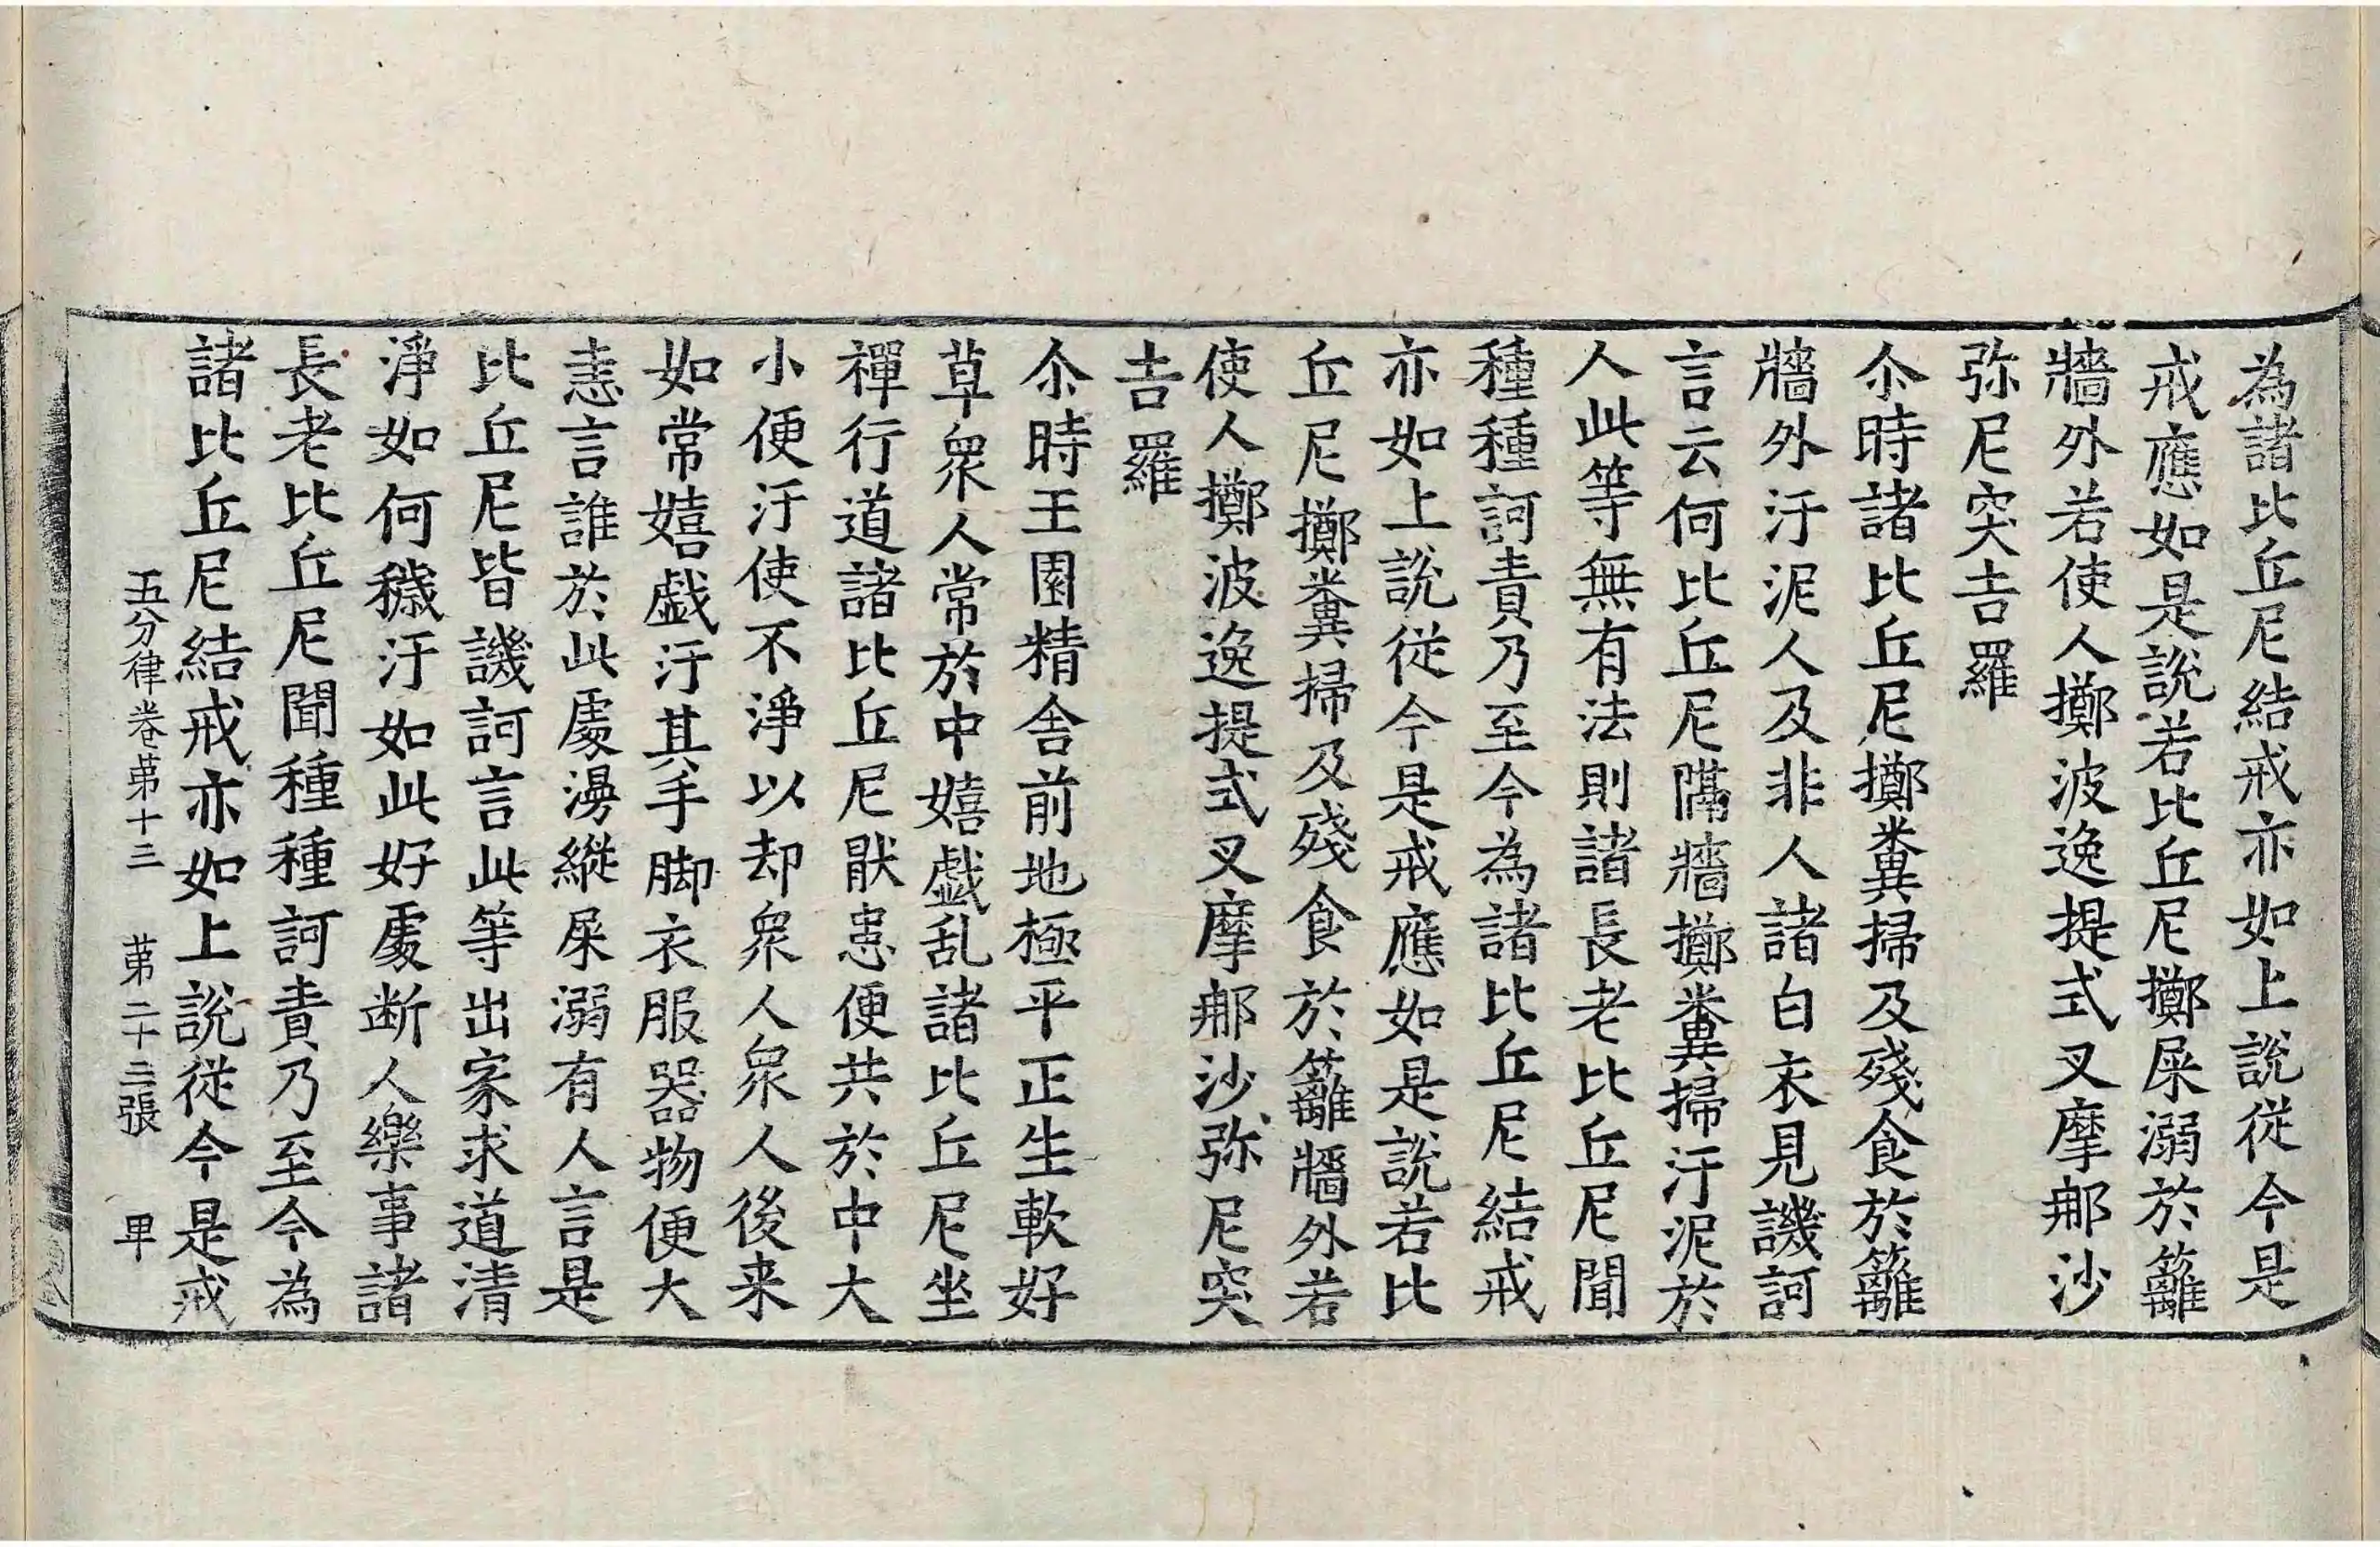 為諸比丘尼結戒亦如上說從今是
戒應如是說若比丘尼擲屎溺於籬
牆外若使人擲波逸提式叉摩那沙
弥尼突吉羅
尒時諸比丘尼擲糞掃及殘食於籬
牆外汙泥人及非人諸白衣見譏訶
言云何比丘尼隔牆擲糞掃汙泥於
人此等無有法則諸長老比丘尼聞
種種訶責乃至今為諸比丘尼結戒
亦如上說從今是戒應如是說若比
丘尼擲糞掃及殘食於籬牆外若
使人擲波逸提式叉摩那沙弥尼突
吉羅
尒時王園精舍前地極平正生軟好
草衆人常於中嬉戲乱諸比丘尼坐
禪行道諸比丘尼猒患便共於中大
小便汙使不淨以却衆人衆人後来
如常嬉戲汙其手脚衣服器物便大
恚言誰於此處漫縱屎溺有人言是
比丘尼皆譏訶言此等出家求道清
淨如何穢汙如此好處断人樂事諸
長老比丘尼聞種種訶責乃至今為
諸比丘尼結戒亦如上說從今是戒
五分律卷苐十三 苐二十二張 甲